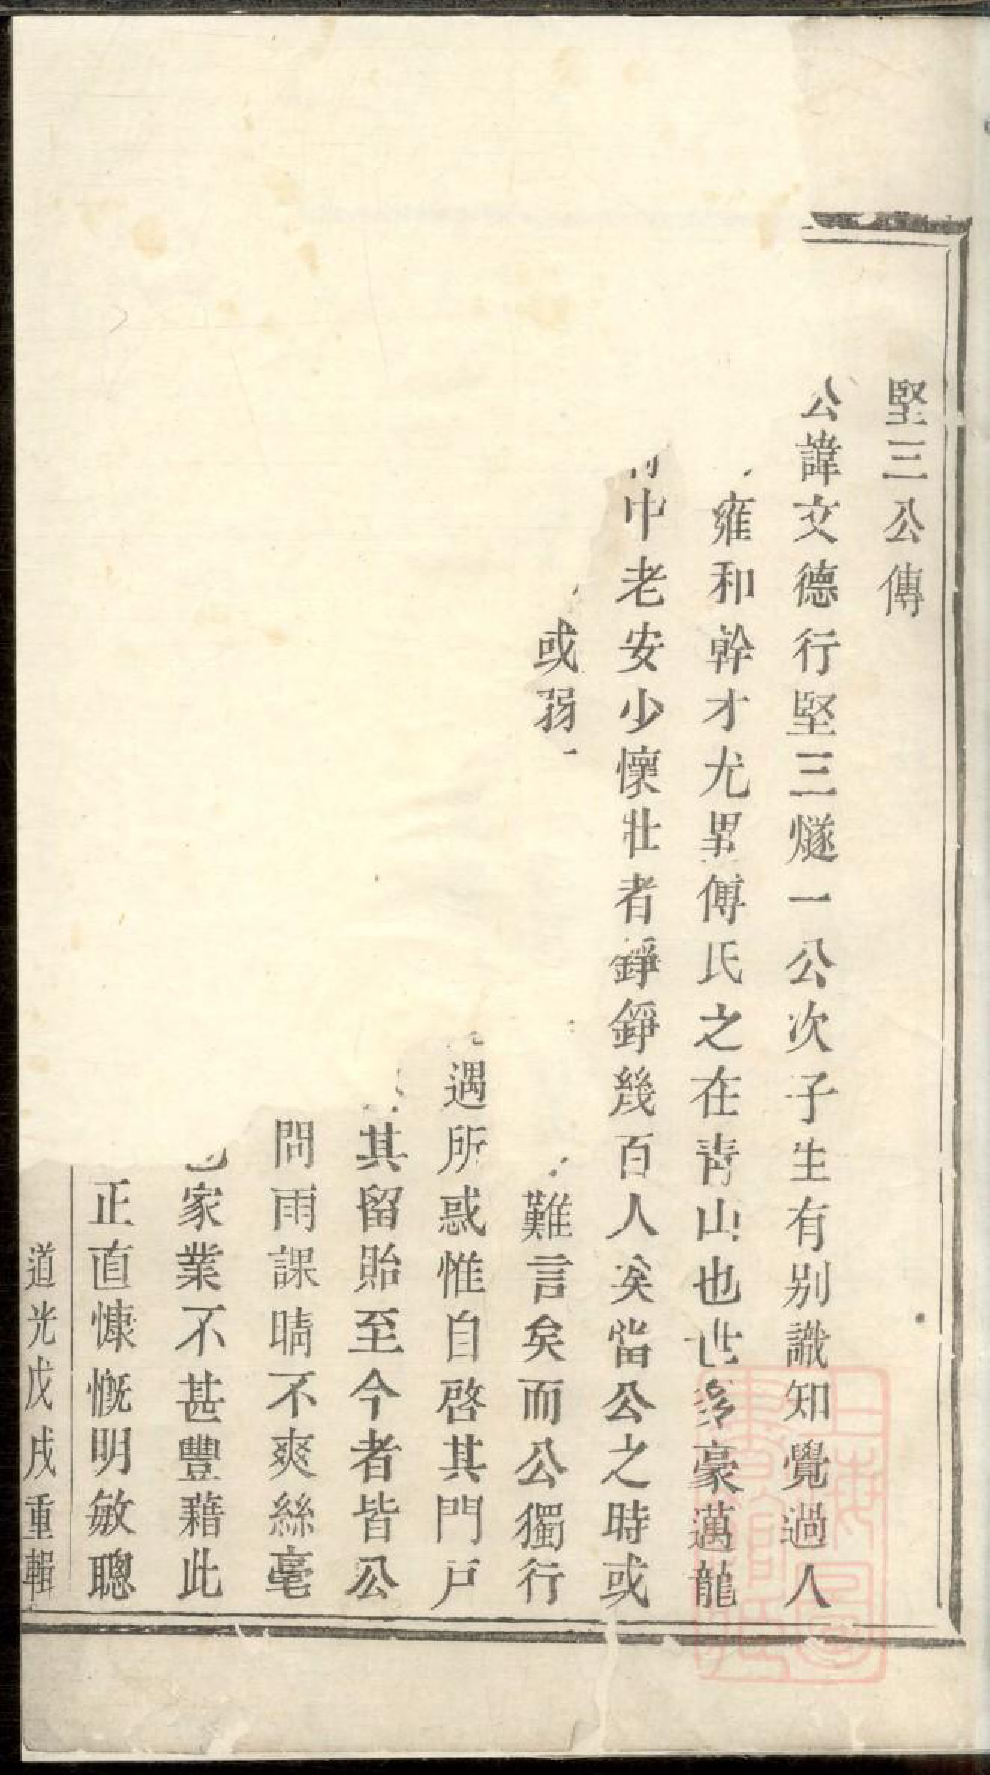 堅三公傳
公諱文德行堅三燧一公次子生有别識知覺過人
雍和幹才尤異傅氏之在青山也世多豪邁龍
中老安少懷壯者錚錚幾百人矣當公之時或
或弱
難言矣而公獨行
遇所惑惟自啓其門戶
其留貽至今者皆公
問雨課晴不爽絲毫
家業不甚豐藉此
正直慷慨明敏聰
道光戊戌重輯
上海圖書館藏